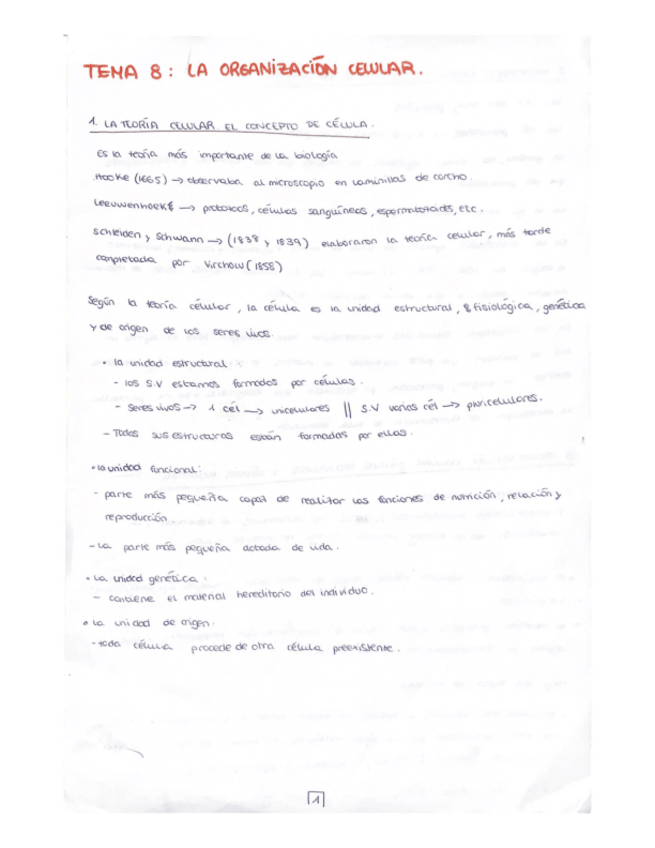 TEMA 8: LA ORGANIZACIÓN CELULAR.
1. LA TEORÍA CELULAR. EL CONCEPTO DE CÉLULA.
Es la teoría más importante de la biología
Hooke (1665) → observaba al microscopio en laminillas de corcho.
Leeuwenhoek → protozoos, células sanguíneas, espermatozoides, etc.
Schleiden y Schwann → (1838 y 1839) elaboraron la teoría celular, más tarde
completada por Virchow (1858)
Según la teoría celular, la célula es la unidad estructural, fisiológica, genética
y de origen de los seres vivos.
• la unidad estructural:
- los S.V estamos formados por células.
- Seres vivos → 1 cél → unicelulares || S.V varias cél → pluricelulares.
- Todas sus estructuras están formadas por ellas.
• la unidad funcional:
- parte más pequeña capaz de realizar las funciones de nutrición, relación y
reproducción.
- La parte más pequeña dotada de vida.
• La unidad genética:
- contiene el material hereditario del individuo.
• la unidad de origen.
- toda célula procede de otra célula preexistente.
1